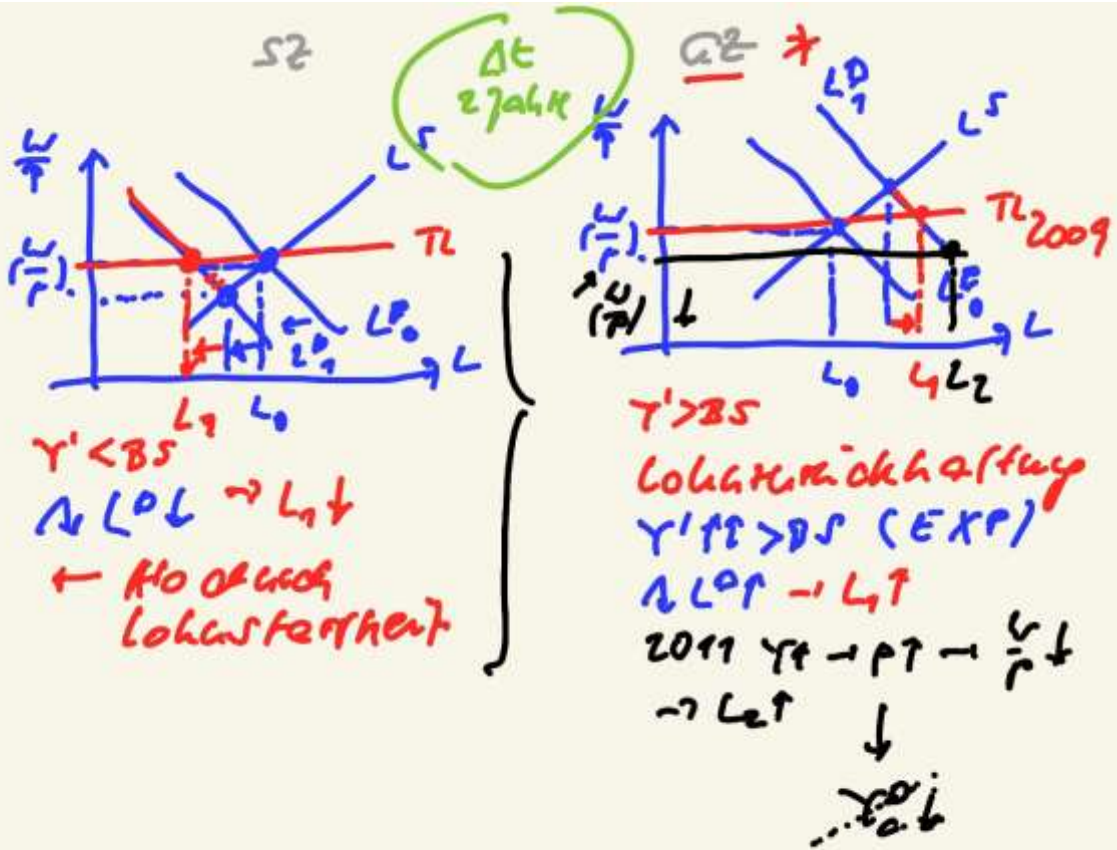 SZ
Δt
2 Jahre
GZ *
W/P
L^S
TL
(W/P)₀
L^D_0
L^D_1
L
L_1
L_0
Y' < BS
L^D ↓ → L_1 ↓
←
Lohnstarrheit
W/P
L^D_1
L^S
TL 2009
(W/P)₀
L^D_0
(W/P) ↓
L
L_0
L_1 L_2
Y' > BS
Lohnzurückhaltung
Y' ↑↑ > BS (EXP)
L^D ↑ → L_1 ↑
2011 Y↑ → P↑ → W/P ↓
→ L_2 ↑
↓